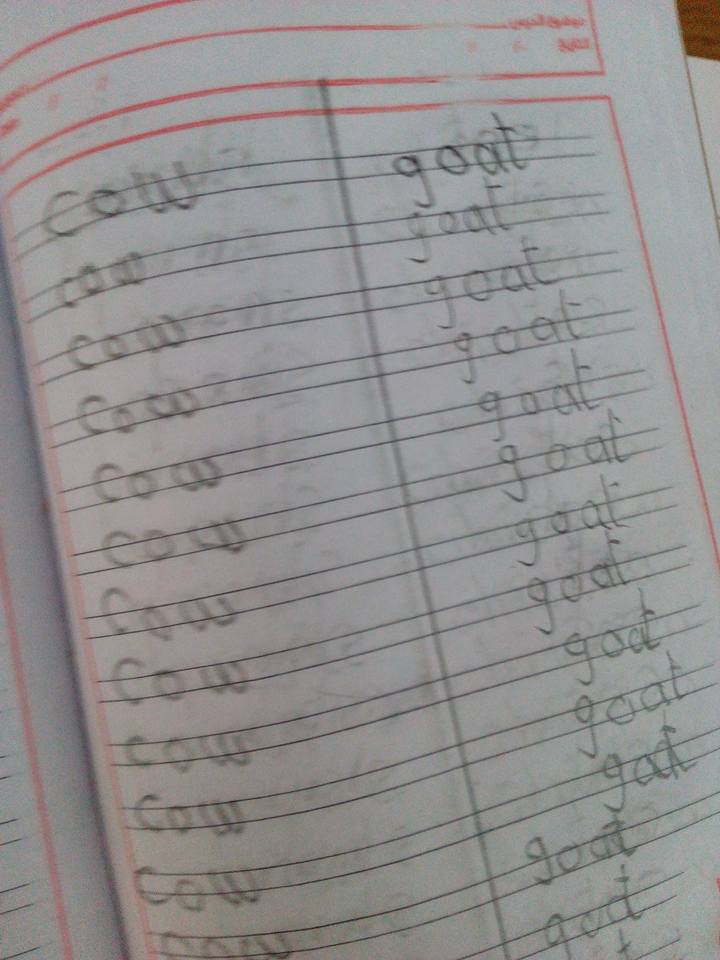 موضوع الدرس
التاريخ
cow goat
cow goat
cow goat
cow goat
cow goat
cow goat
cow goat
cow goat
cow goat
cow goat
cow goat
cow goat
goat